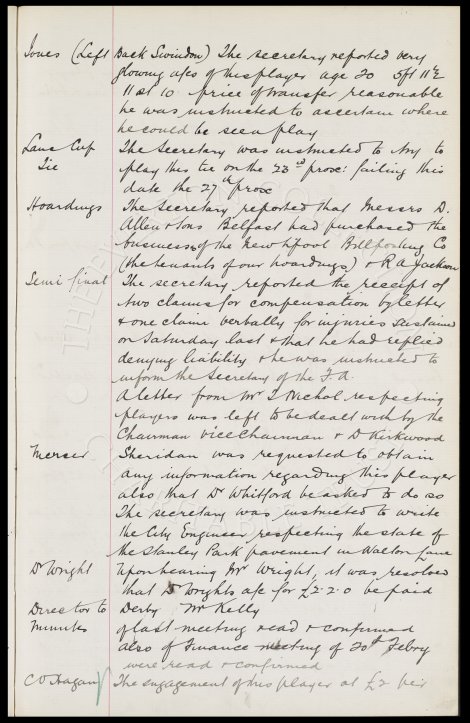 Jones (Left Back Swindon) The secretary reported very
glowing a/cs of this player age 20 5ft 11½
11 st 10 price of transfer reasonable
he was instructed to ascertain where
he could be seen play
Lancs Cup The Secretary was instructed to try to
Tie play this tie on the 23rd prox: failing this
date the 27th prox
Hoardings The Secretary reported that Messrs D.
Allen & Sons Belfast had purchased the
business of the New L'pool Billposting Co
(the tenants of our hoardings) & R A Jackson
Semi final The secretary reported the receipt of
two claims for compensation by letter
& one claim verbally for injuries sustained
on Saturday last & that he had replied
denying liability & he was instructed to
inform the Secretary of the F.A.
A letter from Mr S Nichol respecting
players was left to be dealt with by the
Chairman Vice Chairman & D Kirkwood
Mercer Sheridan was requested to obtain
any information regarding this player
also that Dr Whitford be asked to do so
The secretary was instructed to write
the City Engineer respecting the state of
the Stanley Park pavement in Walton Lane
Dr Wright Upon hearing Mr Wright, it was resolved
that Dr Wrights a/c for £2.2.0 be paid
Director to Derby Mr Kelly
Minutes of last meeting read & confirmed
also of Finance meeting of 20th Febry
were read & confirmed
C O'Hagan The engagement of this player at £2 per